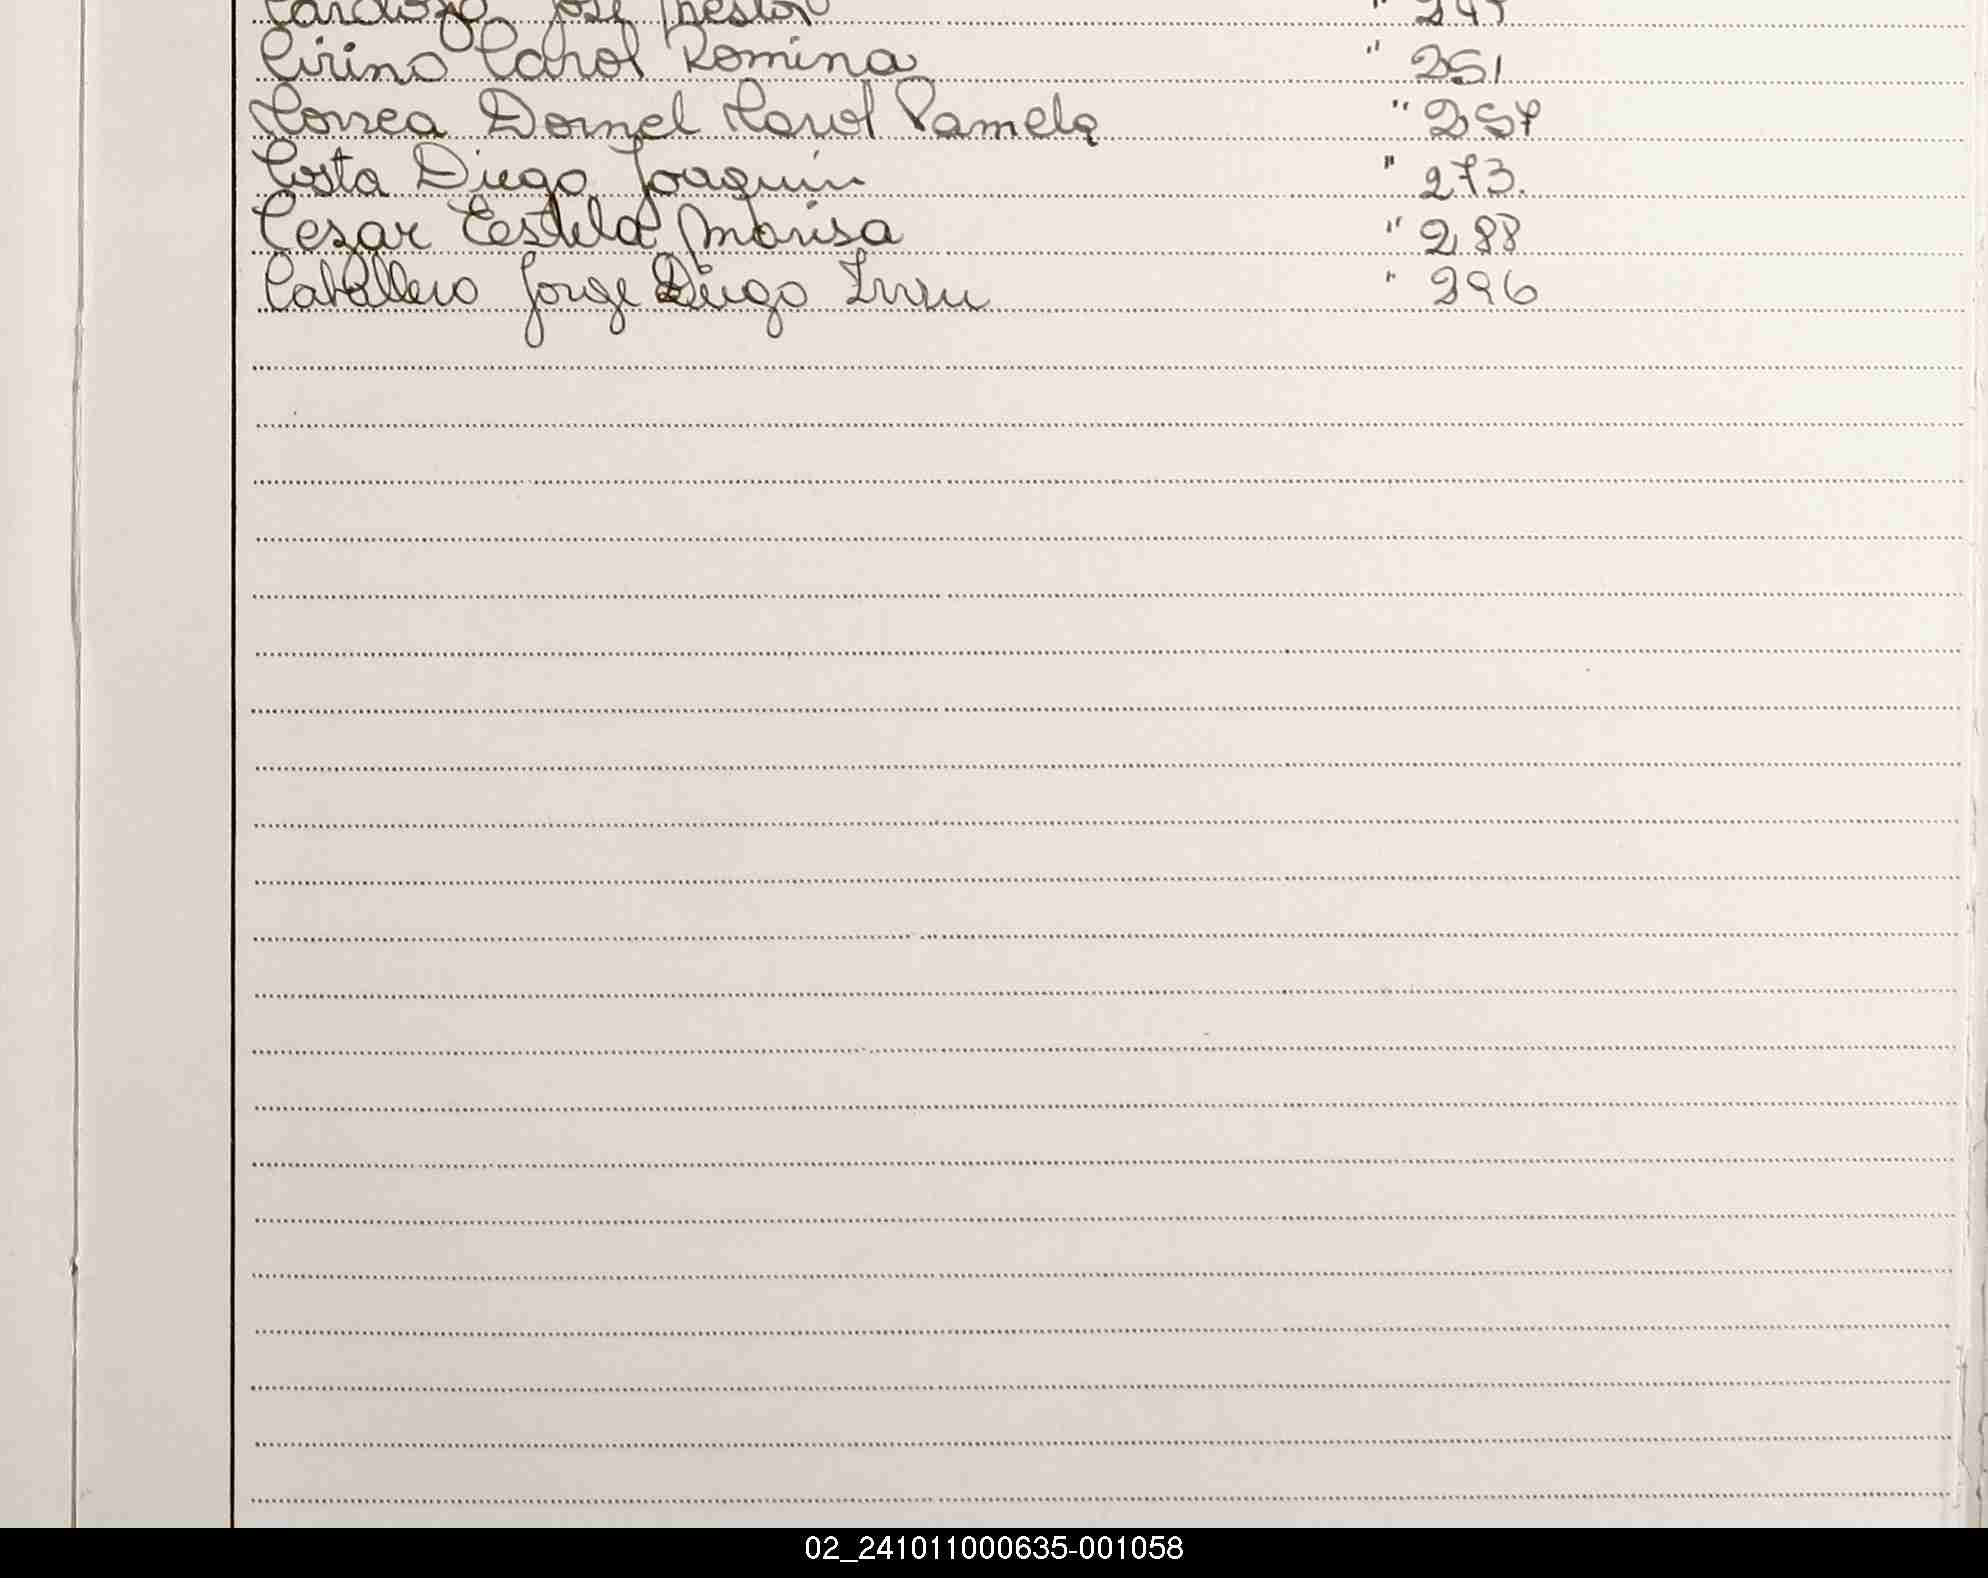 Cardozo José Nestor " 247
Cirino Carol Romina " 251
Correa Dornel Carol Pamela " 257
Costa Diego Joaquin " 273.
Cezar Eestela Marisa " 288
Caballero Jorge Diego " 296
02_241011000635-001058